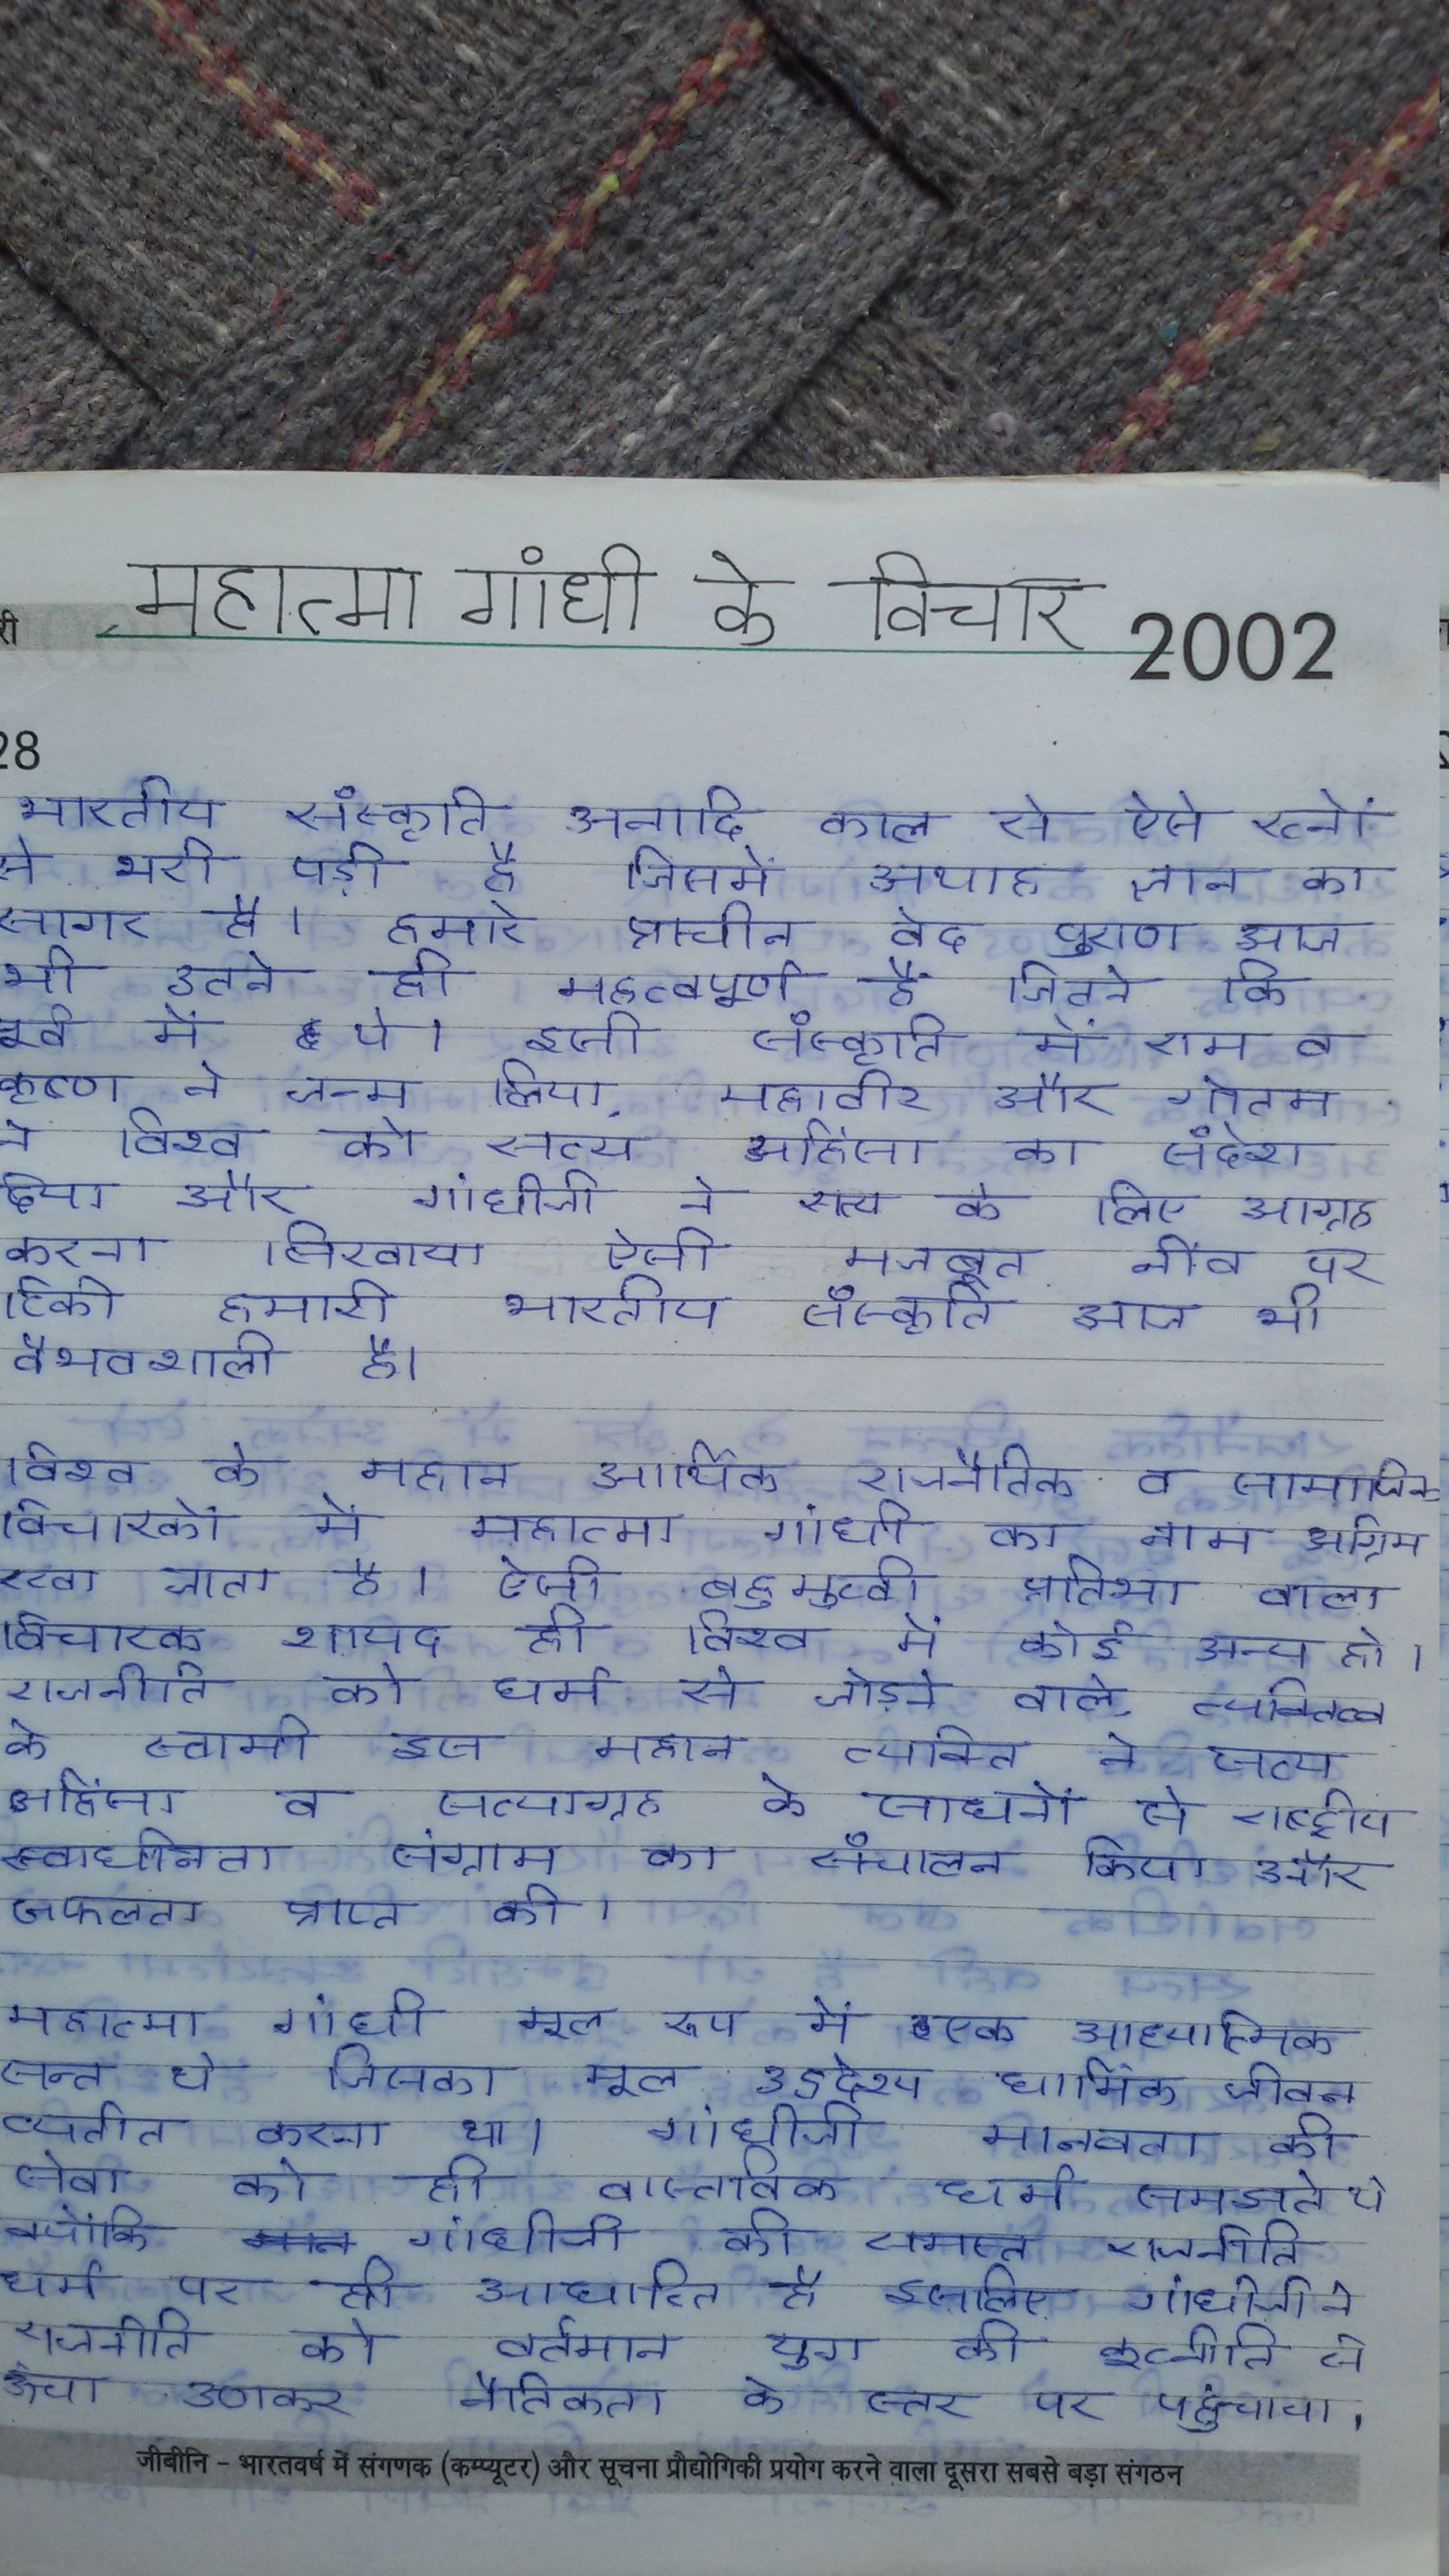 महात्मा गांधी के विचार
री
2002
28
भारतीय संस्कृति अनादि काल से ऐसे रत्नों
से भरी पड़ी है जिसमें अथाह ज्ञान का
सागर है। हमारे प्राचीन वेद पुराण आज
भी उतने ही महत्वपूर्ण हैं जितने कि
पूर्व में थे। इसी संस्कृति में राम व
कृष्ण ने जन्म लिया, महावीर और गौतम
ने विश्व को सत्य अहिंसा का संदेश
दिया और गांधीजी ने सत्य के लिए आग्रह
करना सिखाया ऐसी मजबूत नींव पर
टिकी हमारी भारतीय संस्कृति आज भी
वैभवशाली है।
विश्व के महान आर्थिक राजनैतिक व सामाजिक
विचारकों में महात्मा गांधी का नाम अग्रिम
रखा जाता है। ऐसी बहुमुखी प्रतिभा वाला
विचारक शायद ही विश्व में कोई अन्य हो।
राजनीति को धर्म से जोड़ने वाले, व्यक्तित्व
के स्वामी इस महान व्यक्ति ने सत्य
अहिंसा व सत्याग्रह के साधनों से राष्ट्रीय
स्वाधीनता संग्राम का संचालन किया और
सफलता प्राप्त की।
महात्मा गांधी मूल रूप में एक आध्यात्मिक
सन्त थे जिसका मूल उद्देश्य धार्मिक जीवन
व्यतीत करना था। गांधीजी मानवता की
सेवा को ही वास्तविक धर्म समझते थे
क्योंकि गांधीजी की समस्त राजनीति
धर्म पर ही आधारित है इसलिए गांधीजी ने
राजनीति को वर्तमान युग की कूटनीति से
ऊंचा उठाकर नैतिकता के स्तर पर पहुंचाया।
जीबीनि - भारतवर्ष में संगणक (कम्प्यूटर) और सूचना प्रौद्योगिकी प्रयोग करने वाला दूसरा सबसे बड़ा संगठन